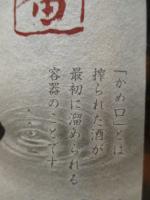 「かめ口」とは
搾られた酒が
最初に溜められる
容器のことです
・・・